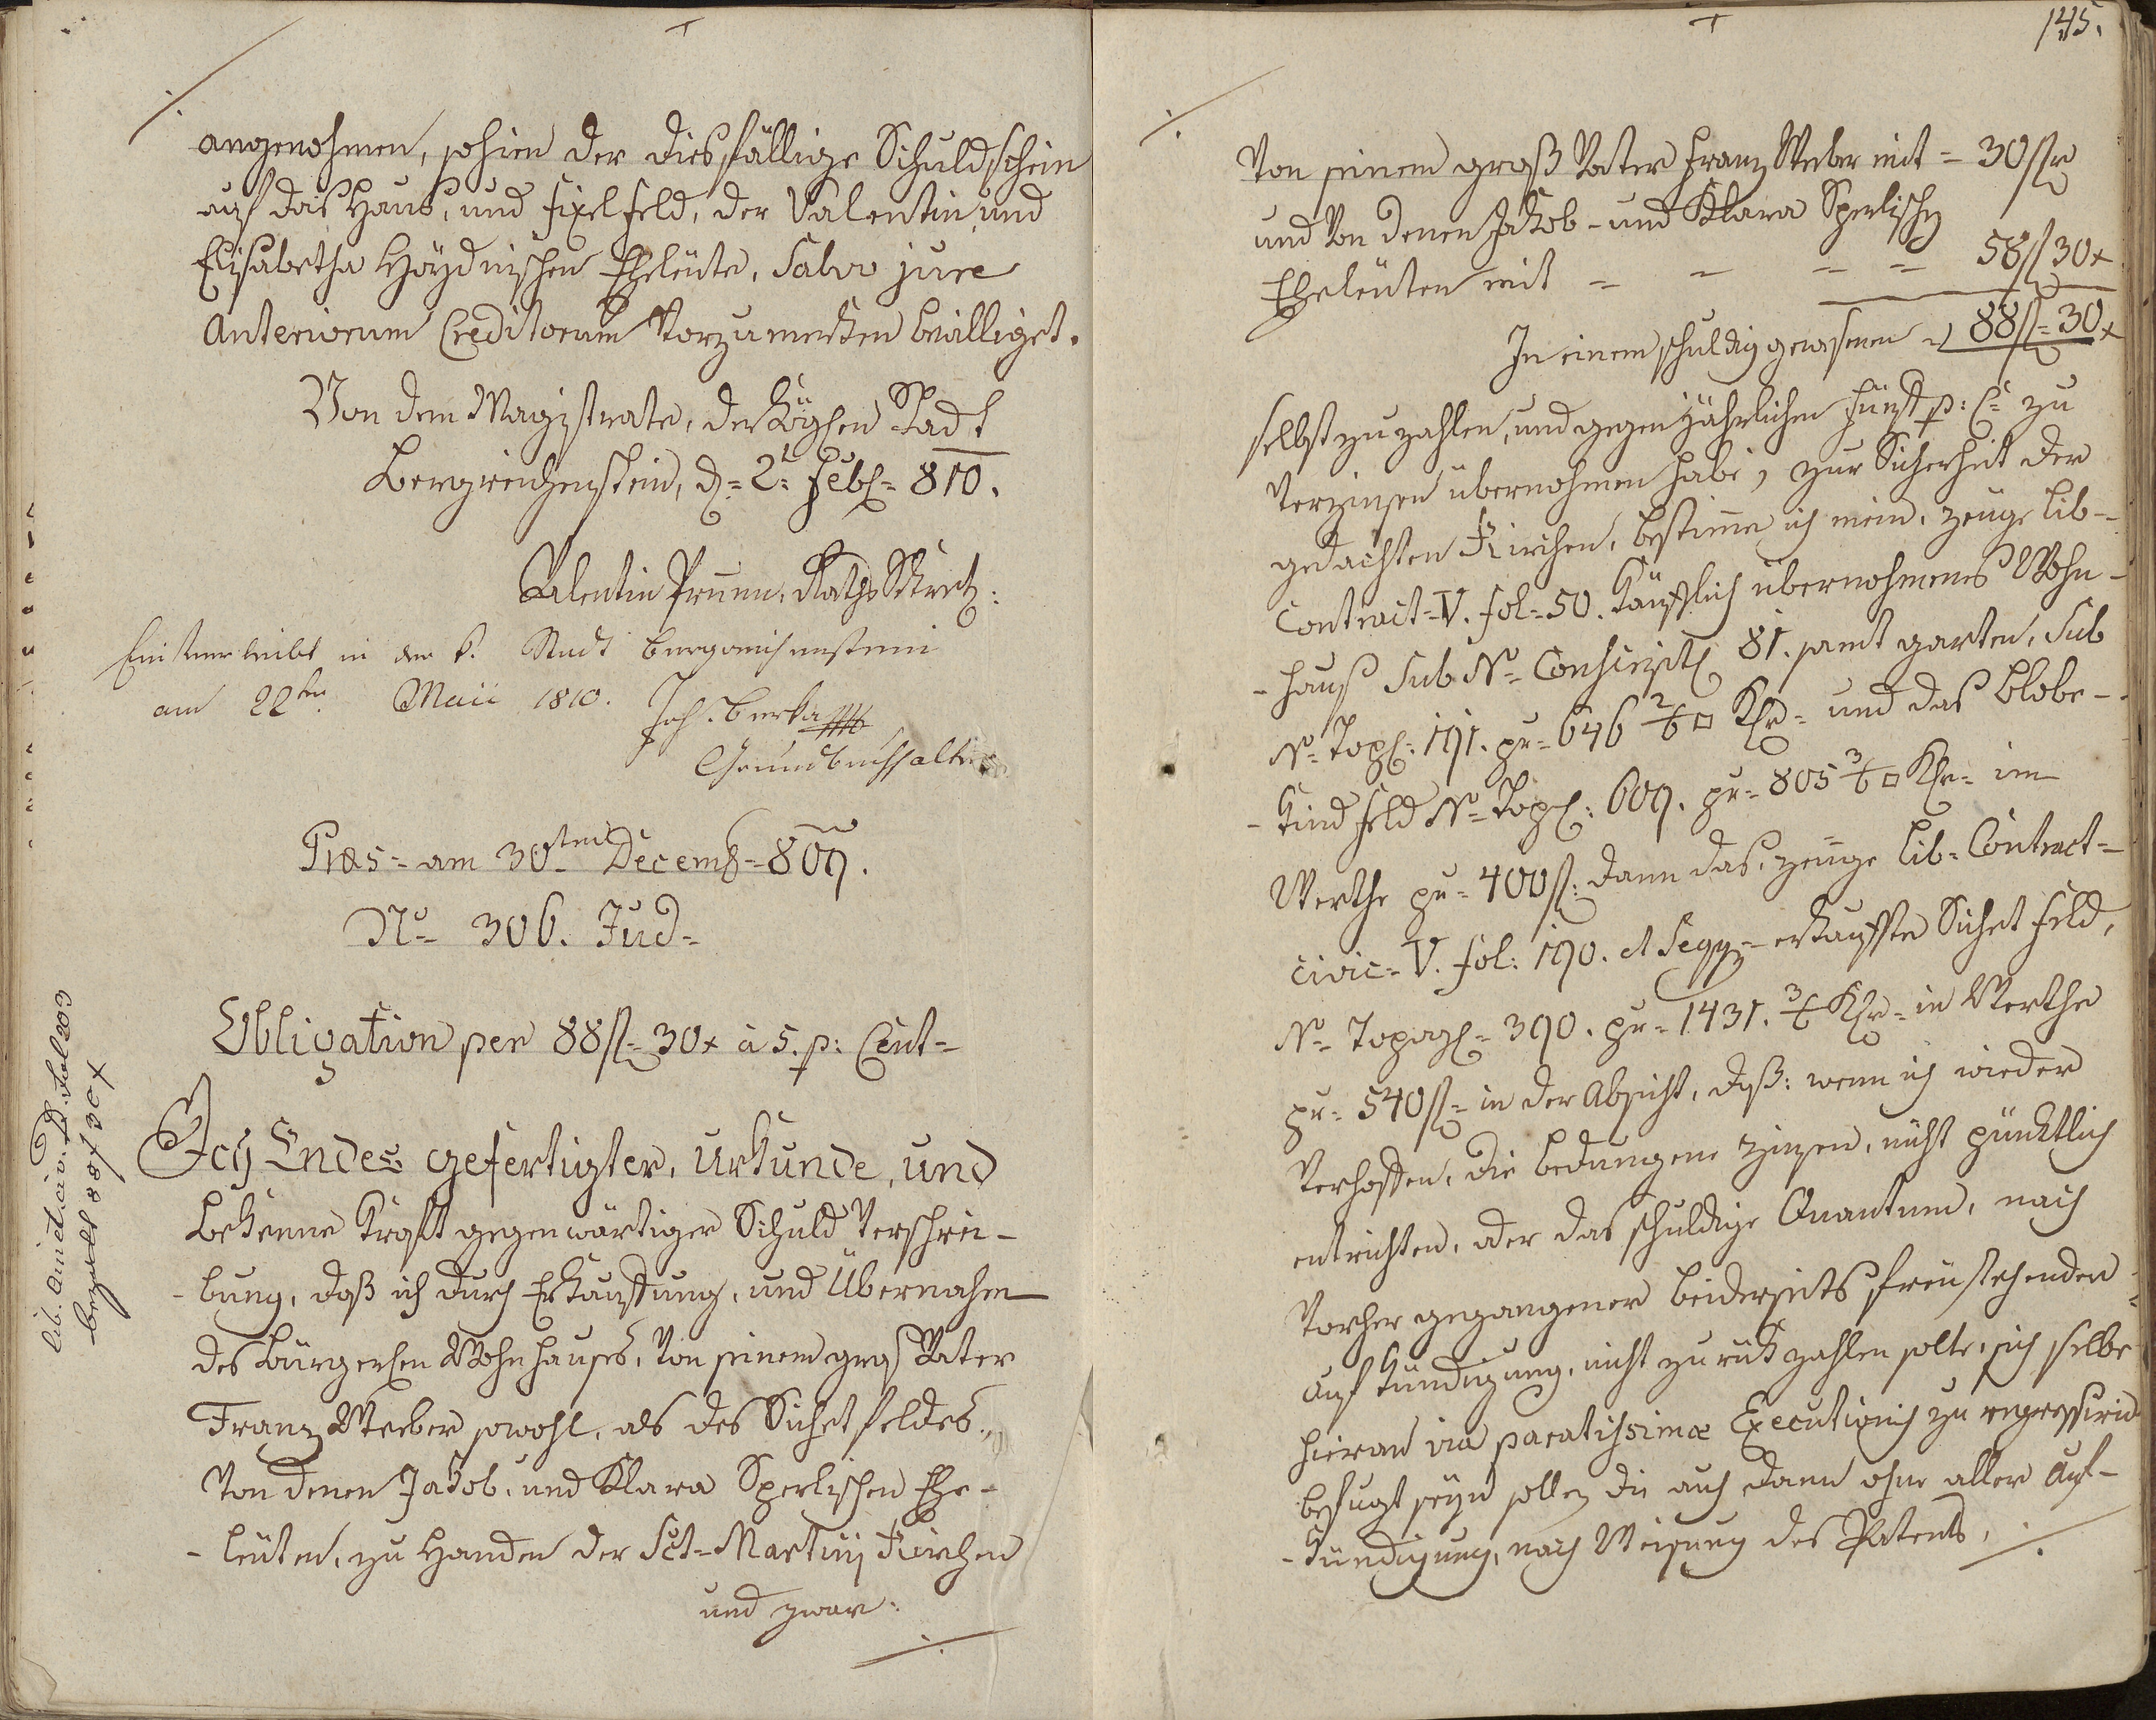 angenohmen, sohin der diesfällige Schuldschein
auf das Haus, und Fixel feld, der Valentin, und
Elisabetha Höydnischen Eheleüte, Salvo jure
Anteriorum Creditorum Vorzumerken bewilliget.
Von dem Magistrate, der Köglhen Stadt
Bergreichenstein, d= 2t= Feb= 810.
Valentin Prunn, Raths
Einverleibt in der k. Stadt Bergreichenstein
am 22ten Maii 1810. Joh. Berka
Grundbuchhalter
Præs= am 30ten Decemb=809.
Nr= 306. Jud=
Obligation per 88f= 30x à 5. p: Cent=
lib. civ. fol 203
bezalt 88f 30x
Ich Endes gefertigter, Urkunde, und
Bekenne Kraft gegenwärtiger Schuld Verschrei-
-bung, daß ich durch Erkauffung, und Übernahm
des Bürgerlhen Wohnhauses, Von seinem groß Vater
Franz Weeber sowohl, als des Sichet feldes
Von denen Jakob, und Klara Sperlischen Ehe-
-leüten, zu Handen der Sct= Martini Kirchen
und zwar:
145.
Von seinem groß Vater Franz Weber mit = 30f
und Von denen Jakob- und Klara Sperlisch
Eheleüten mit = = = = 58f 30x
In einem schuldig gewesenen 88f= 30x
selbst zu zahlen, und gegen jährlichen fünf p: C= zu
Verzinsen übernohmen habe, zur Sicherheit der
gedachten Kirchen, bestime ich mein, zeuge Lib-
Contract= V. fol= 50. Käuflich übernohmenes Wohn-
-haus Sub No= Conscript 81. samt garten, Sub
No= Top: 191. pr= 646 2/6 □ Klr= und das Blobe-
-Kind feld No= Top: 609. pr= 805 3/6 □ Klr= im
Werthe pr= 400f: dann das, zeuge Lib= Contract=
civic= V. fol: 190. et Seqq= erkaufte Sichet feld,
No= Topog= 390. pr= 1431. 3/6 Klr= in Werthe
pr= 540f= in der Absicht, daß: wenn ich wieder
Verhoffen, die bedungene Zinsen, nicht pünktlich
entrichten, oder das schuldige Quantum, nach
Vorher gegangener beiderseits freüstehenden
Auf kündigung, nicht zurük zahlen solte, sich selbe
hieran via paratissimæ Executionis zu regressiren
befugt seyn solle, die auch dann ohne aller Auf-
-kündigung, nach Weisung des Patents,